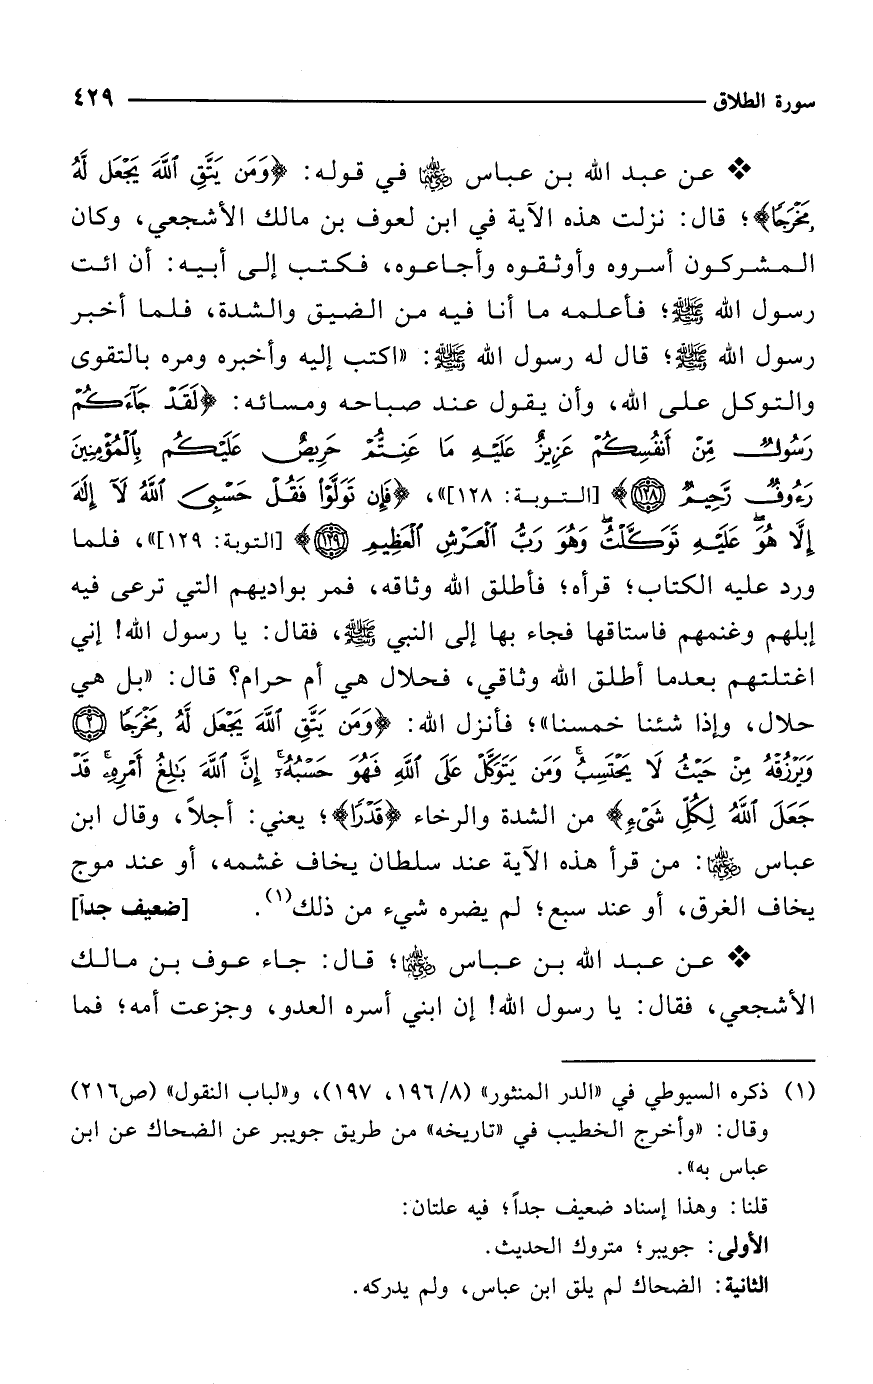 سورة الطلاق ٤٢٩
❖ عن عبد الله بن عباس رضي الله عنهما في قوله: ﴿وَمَن يَتَّقِ ٱللَّهَ يَجْعَل لَّهُۥ
مَخْرَجًا﴾؛ قال: نزلت هذه الآية في ابن لعوف بن مالك الأشجعي، وكان
المشركون أسروه وأوثقوه وأجاعوه، فكتب إلى أبيه: أن ائت
رسول الله ﷺ؛ فأعلمه ما أنا فيه من الضيق والشدة، فلما أخبر
رسول الله ﷺ؛ قال له رسول الله ﷺ: «اكتب إليه وأخبره ومره بالتقوى
والتوكل على الله، وأن يقول عند صباحه ومسائه: ﴿لَقَدْ جَآءَكُمْ
رَسُولٌ مِّنْ أَنفُسِكُمْ عَزِيزٌ عَلَيْهِ مَا عَنِتُّمْ حَرِيصٌ عَلَيْكُم بِٱلْمُؤْمِنِينَ
رَءُوفٌ رَّحِيمٌ ١٢٨﴾ [التوبة: ١٢٨]»، ﴿فَإِن تَوَلَّوْا۟ فَقُلْ حَسْبِىَ ٱللَّهُ لَآ إِلَٰهَ
إِلَّا هُوَ ۖ عَلَيْهِ تَوَكَّلْتُ ۖ وَهُوَ رَبُّ ٱلْعَرْشِ ٱلْعَظِيمِ ١٢٩﴾ [التوبة: ١٢٩]»، فلما
ورد عليه الكتاب؛ قرأه؛ فأطلق الله وثاقه، فمر بواديهم التي ترعى فيه
إبلهم وغنمهم فاستاقها فجاء بها إلى النبي ﷺ، فقال: يا رسول الله! إني
اغتلتهم بعدما أطلق الله وثاقي، فحلال هي أم حرام؟ قال: «بل هي
حلال، وإذا شئنا خمسنا»؛ فأنزل الله: ﴿وَمَن يَتَّقِ ٱللَّهَ يَجْعَل لَّهُۥ مَخْرَجًا ٢
وَيَرْزُقْهُ مِنْ حَيْثُ لَا يَحْتَسِبُ ۚ وَمَن يَتَوَكَّلْ عَلَى ٱللَّهِ فَهُوَ حَسْبُهُۥٓ ۚ إِنَّ ٱللَّهَ بَٰلِغُ أَمْرِهِۦ ۚ قَدْ
جَعَلَ ٱللَّهُ لِكُلِّ شَىْءٍ﴾ من الشدة والرخاء ﴿قَدْرًا﴾؛ يعني: أجلاً، وقال ابن
عباس رضي الله عنهما: من قرأ هذه الآية عند سلطان يخاف غشمه، أو عند موج
يخاف الغرق، أو عند سبع؛ لم يضره شيء من ذلك(١). [ضعيف جداً]
❖ عن عبد الله بن عباس رضي الله عنهما؛ قال: جاء عوف بن مالك
الأشجعي، فقال: يا رسول الله! إن ابني أسره العدو، وجزعت أمه؛ فما
(١) ذكره السيوطي في «الدر المنثور» (٨/ ١٩٦، ١٩٧)، و«لباب النقول» (ص٢١٦)
وقال: «وأخرج الخطيب في «تاريخه» من طريق جويبر عن الضحاك عن ابن
عباس به».
قلنا: وهذا إسناد ضعيف جداً؛ فيه علتان:
الأولى: جويبر؛ متروك الحديث.
الثانية: الضحاك لم يلق ابن عباس، ولم يدركه.